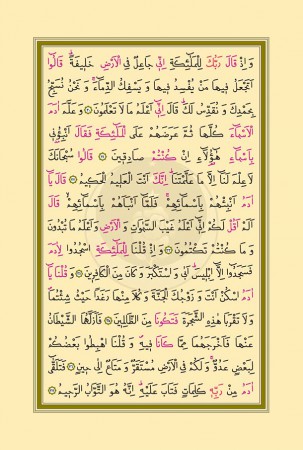 وَاِذْ قَالَ رَبُّكَ لِلْمَلٰٓئِكَةِ اِنّ۪ي جَاعِلٌ فِي الْاَرْضِ خَل۪يفَةًۜ قَالُٓوا
اَتَجْعَلُ ف۪يهَا مَنْ يُفْسِدُ ف۪يهَا وَيَسْفِكُ الدِّمَٓاءَۚ وَنَحْنُ نُسَبِّحُ
بِحَمْدِكَ وَنُقَدِّسُ لَكَۜ قَالَ اِنّ۪ٓي اَعْلَمُ مَا لَا تَعْلَمُونَ ﴿٣٠﴾ وَعَلَّمَ اٰدَمَ
الْاَسْمَٓاءَ كُلَّهَا ثُمَّ عَرَضَهُمْ عَلَى الْمَلٰٓئِكَةِ فَقَالَ اَنْبِؤُ۫ن۪ي
بِاَسْمَٓاءِ هٰٓؤُ۬لَٓاءِ اِنْ كُنْتُمْ صَادِق۪ينَ ﴿٣١﴾ قَالُوا سُبْحَانَكَ
لَا عِلْمَ لَنَٓا اِلَّا مَا عَلَّمْتَنَاۜ اِنَّكَ اَنْتَ الْعَل۪يمُ الْحَك۪يمُ ﴿٣٢﴾ قَالَ يَٓا
اٰدَمُ اَنْبِئْهُمْ بِاَسْمَٓائِهِمْۚ فَلَمَّٓا اَنْبَاَهُمْ بِاَسْمَٓائِهِمْۙ قَالَ
اَلَمْ اَقُلْ لَكُمْ اِنّ۪ٓي اَعْلَمُ غَيْبَ السَّمٰوَاتِ وَالْاَرْضِ وَاَعْلَمُ مَا تُبْدُونَ
وَمَا كُنْتُمْ تَكْتُمُونَ ﴿٣٣﴾ وَاِذْ قُلْنَا لِلْمَلٰٓئِكَةِ اسْجُدُوا لِاٰدَمَ
فَسَجَدُٓوا اِلَّٓا اِبْل۪يسَۜ اَبٰى وَاسْتَكْبَرَ وَكَانَ مِنَ الْكَافِر۪ينَ ﴿٣٤﴾ وَقُلْنَا يَٓا
اٰدَمُ اسْكُنْ اَنْتَ وَزَوْجُكَ الْجَنَّةَ وَكُلَا مِنْهَا رَغَدًا حَيْثُ شِئْتُمَا
وَلَا تَقْرَبَا هٰذِهِ الشَّجَرَةَ فَتَكُونَا مِنَ الظَّالِم۪ينَ ﴿٣٥﴾ فَاَزَلَّهُمَا الشَّيْطَانُ
عَنْهَا فَاَخْرَجَهُمَا مِمَّا كَانَا ف۪يهِۖ وَقُلْنَا اهْبِطُوا بَعْضُكُمْ
لِبَعْضٍ عَدُوٌّۚ وَلَكُمْ فِي الْاَرْضِ مُسْتَقَرٌّ وَمَتَاعٌ اِلٰى ح۪ينٍ ﴿٣٦﴾ فَتَلَقّٰٓى
اٰدَمُ مِنْ رَبِّه۪ كَلِمَاتٍ فَتَابَ عَلَيْهِۜ اِنَّهُ هُوَ التَّوَّابُ الرَّح۪يمُ ﴿٣٧﴾